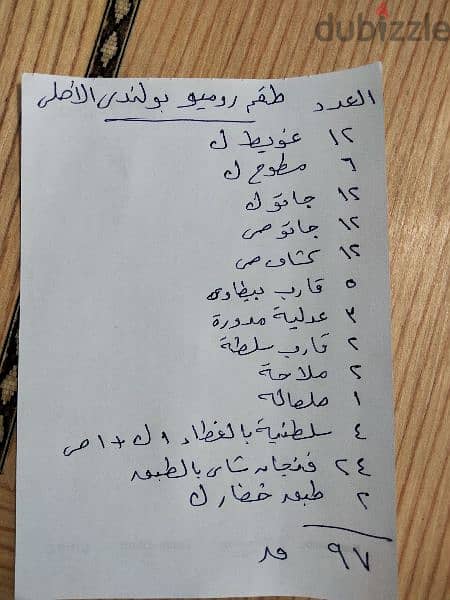 dubizzle
العدد طقم روميو بولندى الأصلى
١٢ غويط ك
٦ مطوح ك
١٢ جاتو ك
١٢ جاتو ص
١٢ كشاف ص
٥ قارب بيطاوى
٣ عدلية مدورة
٢ قارب سلطة
٢ ملاحة
١ صلصاله
٤ سلطنية بالغطاء ١ ك + ١ ص
٢٤ فنجان شاى بالطبق
٢ طبق خضار ك
٩٧ قد